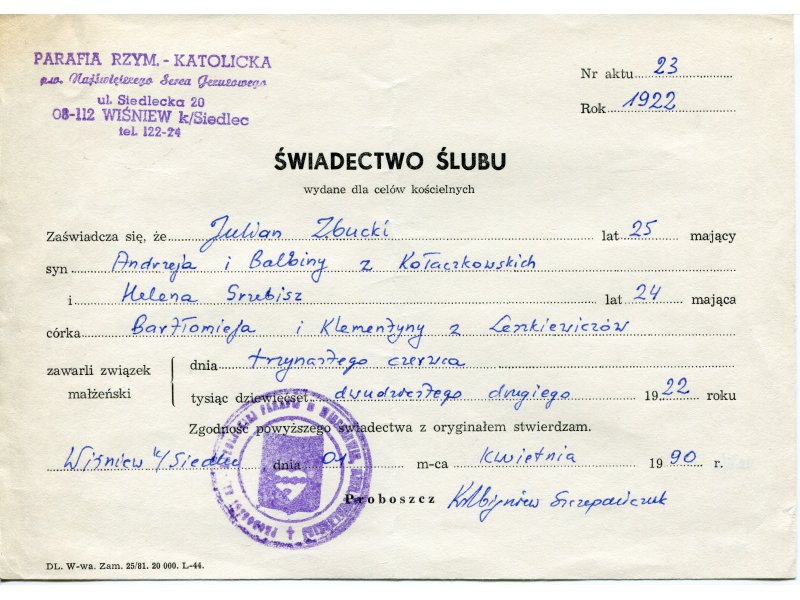 PARAFIA RZYM. - KATOLICKA
p.w. Najświętszego Serca Jezusowego
ul. Siedlecka 20
08-112 WIŚNIEW k/Siedlec
tel. 122-24
Nr aktu 23
Rok 1922
ŚWIADECTWO ŚLUBU
wydane dla celów kościelnych
Zaświadcza się, że Julian Zbucki lat 25 mający
syn Andrzeja i Balbiny z Kołaczkowskich
i Helena Srzebisz lat 24 mająca
córka Bartłomieja i Klementyny z Leszkiewiczów
zawarli związek małżeński
dnia trzynastego czerwca
tysiąc dziewięćset dwudziestego drugiego 1922 roku
Zgodność powyższego świadectwa z oryginałem stwierdzam.
Wiśniew k/Siedlec, dnia 01 m-ca kwietnia 1990 r.
Proboszcz Ks. Zbigniew Szczepańczuk
DL. W-wa. Zam. 25/81. 20 000. L-44.